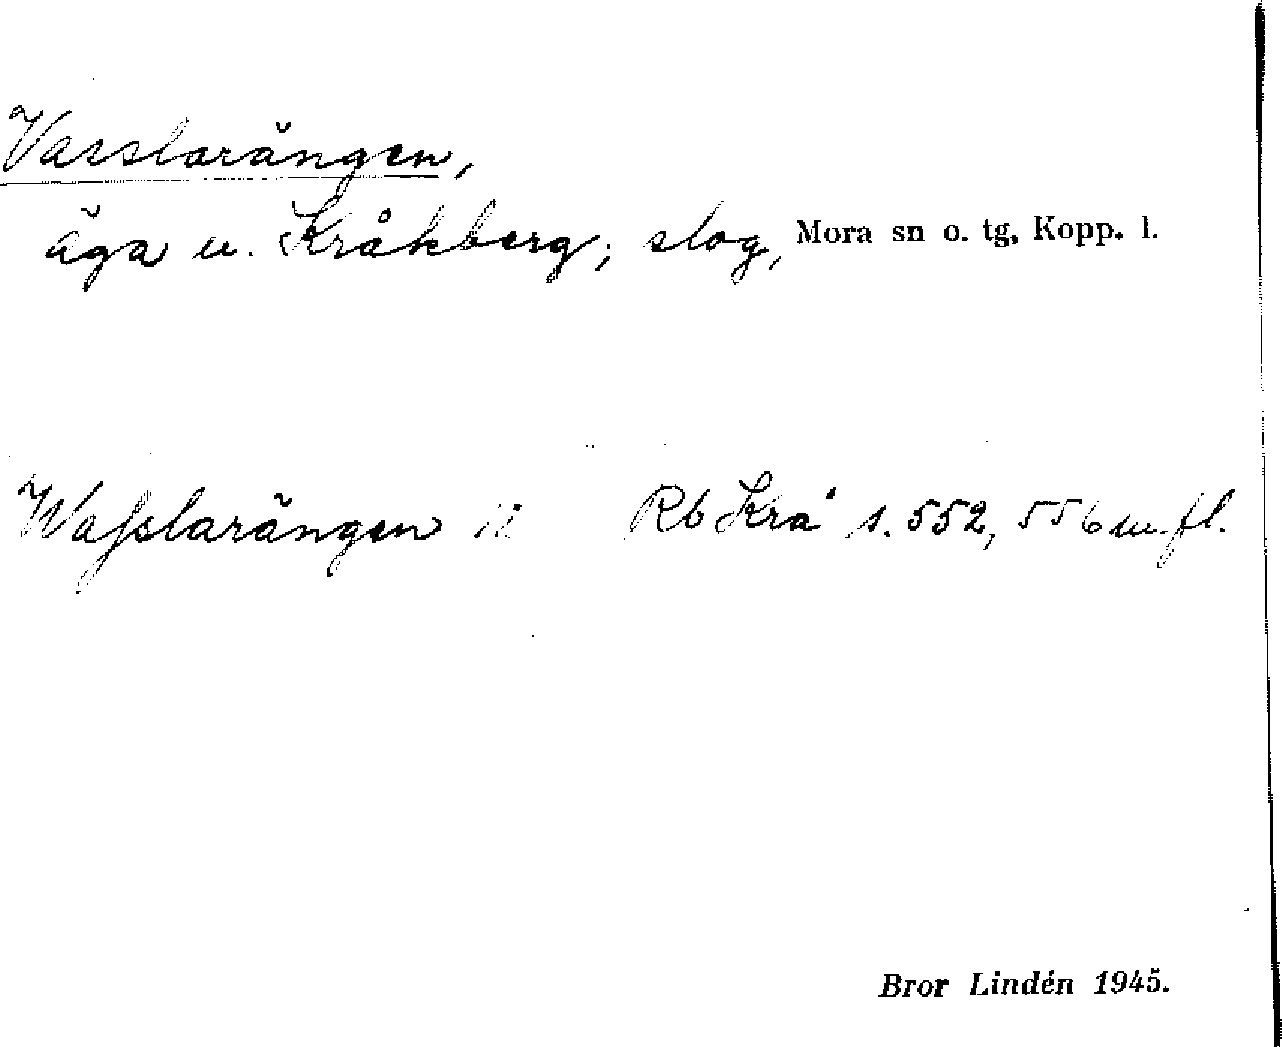 Vasslarängen,
äga u. Kråkberg; slog, Mora sn o. tg, Kopp. l.
Wasslarängen Rb Krå s. 552, 556 m. fl.
Bror Lindén 1945.